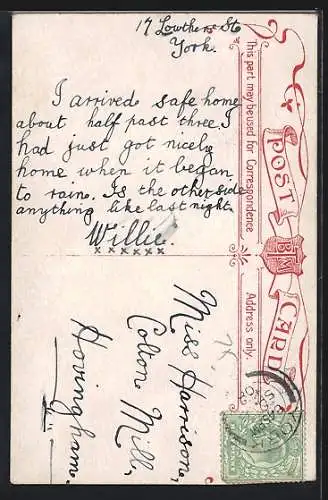 17 Lowther St
York.
I arrived safe home
about half past three, I
had just got nicely
home when it began
to rain. Is the other side
anything like last night.
Willie.
x x x x x x
This part may be used for Correspondence
Address only.
POST CARD
B M
Miss Harrison,
Colton Mill,
Hovingham.
YORK